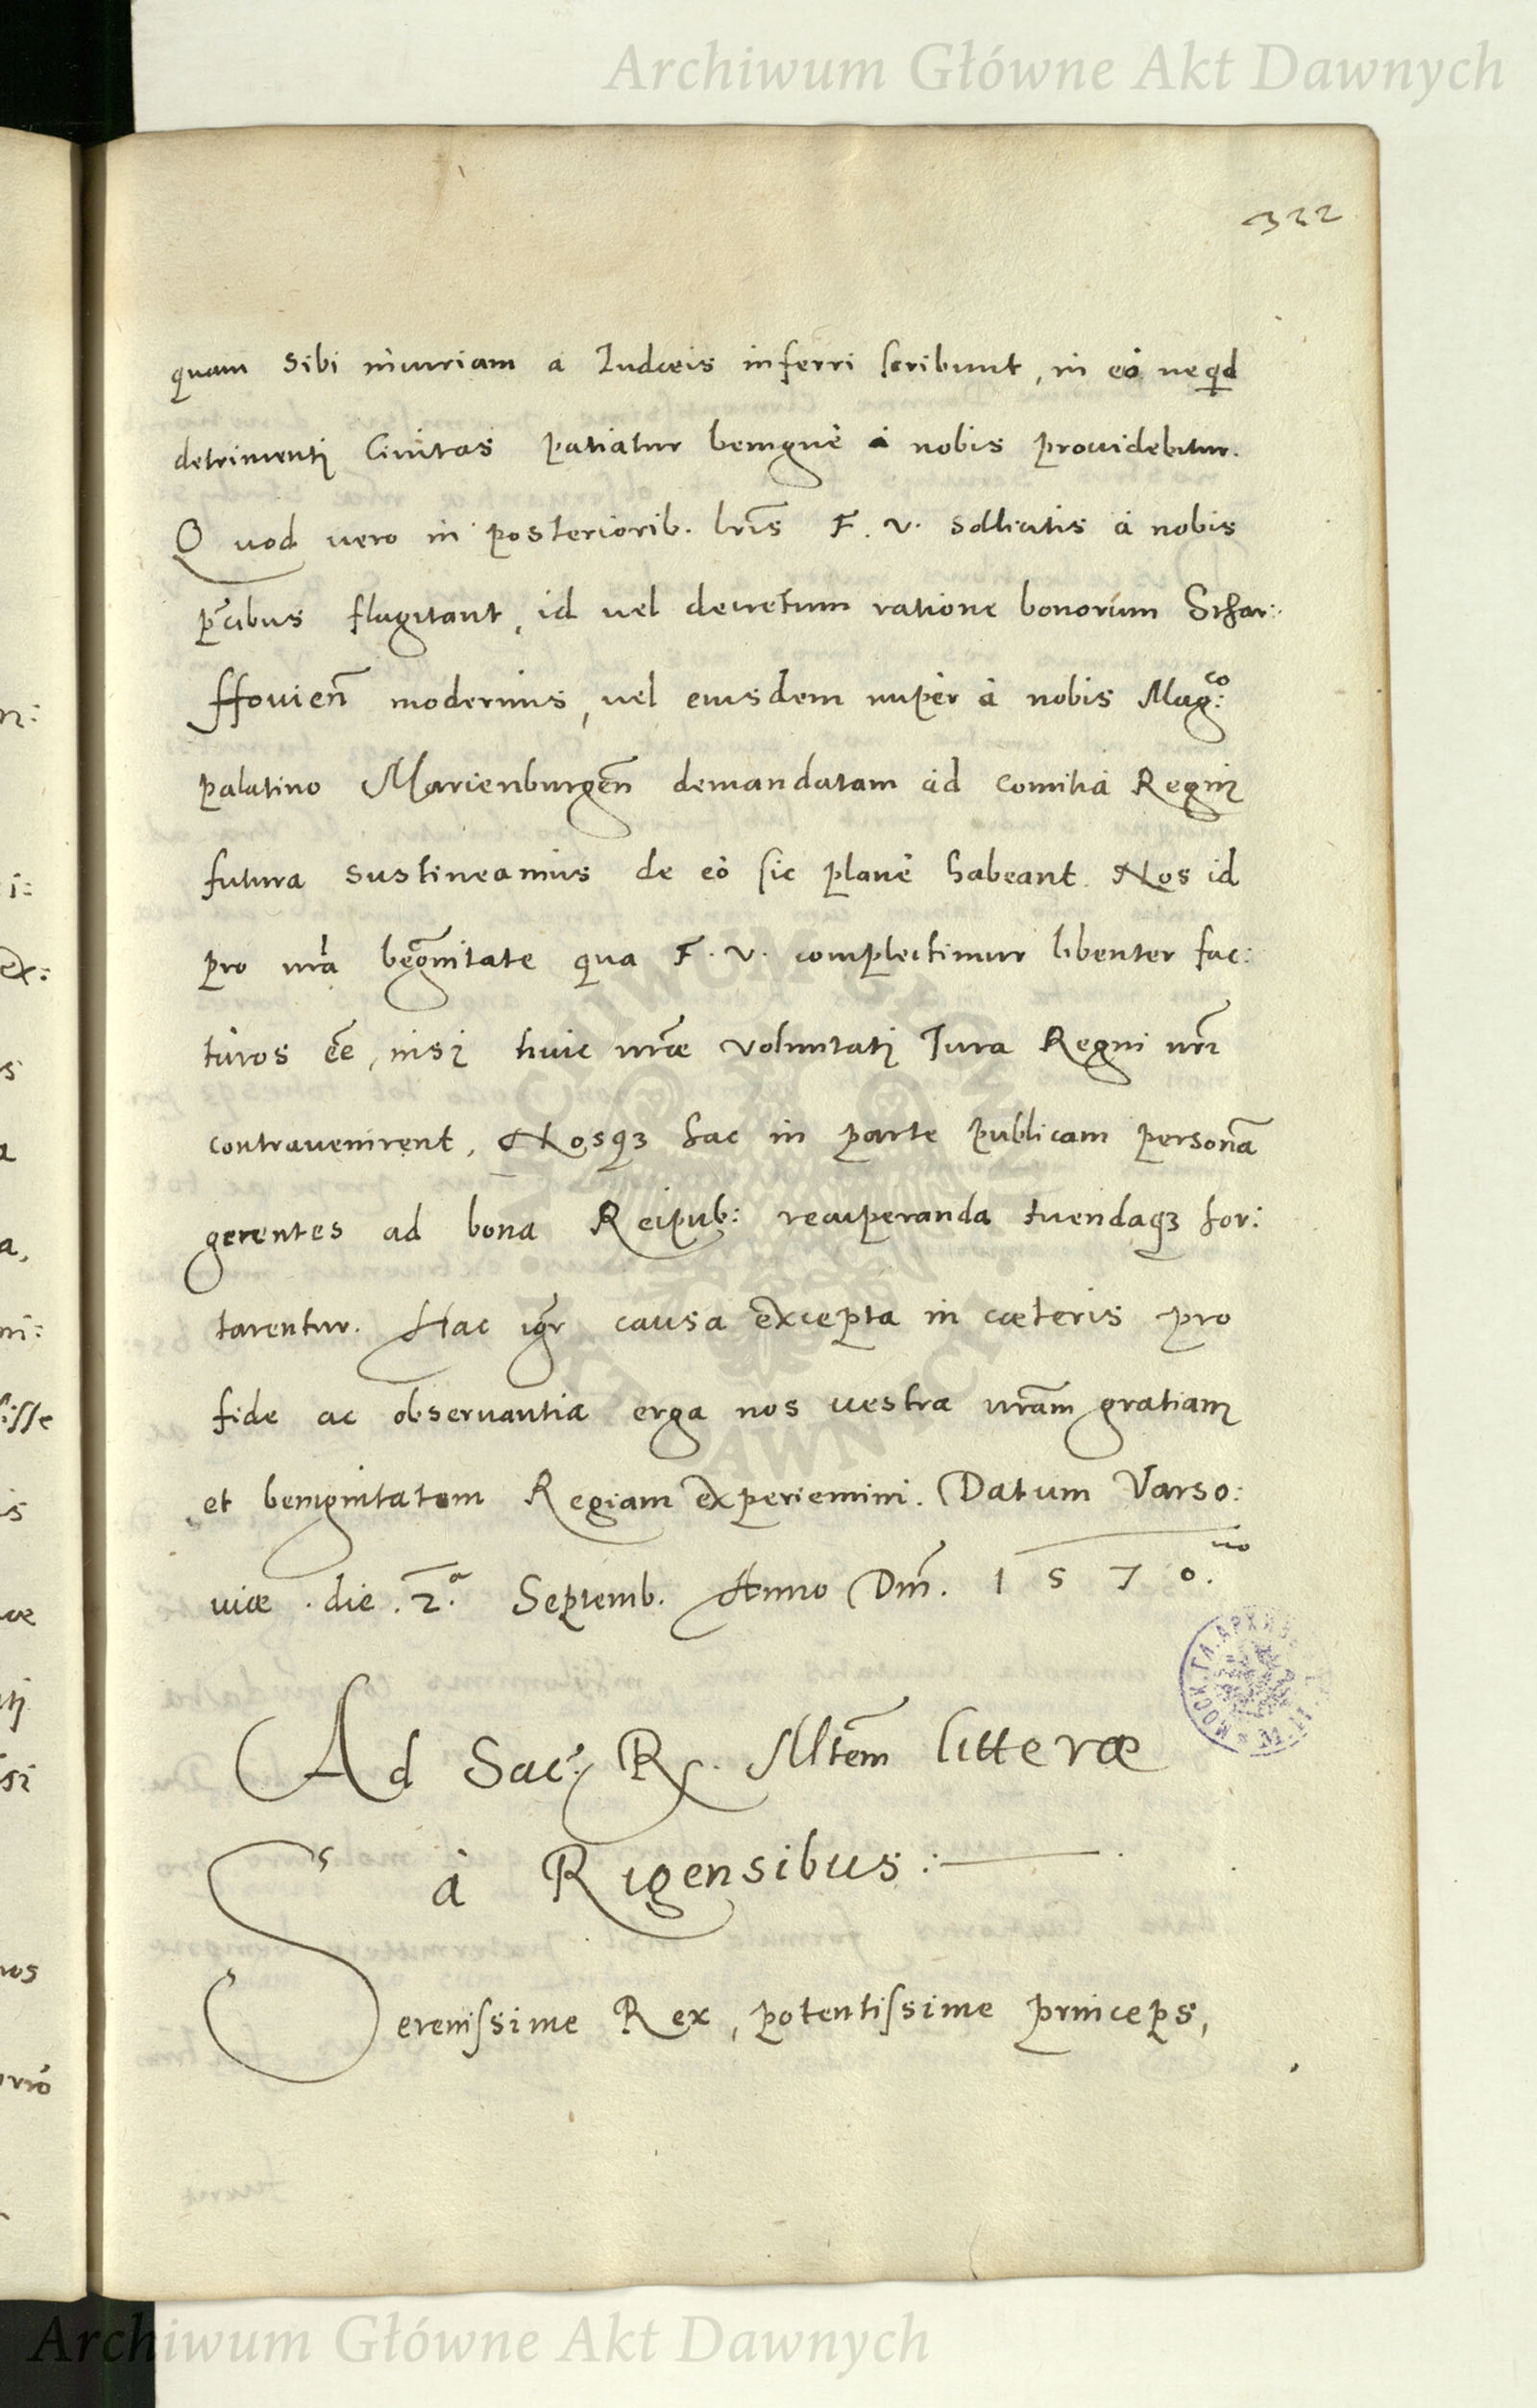 Archiwum Główne Akt Dawnych
322
quam sibi iniuriam a Iudæis inferri scribunt, in eò neqd
detrimenti Ciuitas patiatur benignè à nobis prouidebitur.
Quod vero in posteriorib. lr̃is F. V. sollicitis à nobis
p̃cibus flagitant, id vel decretum ratione bonorum Schar:
ffouien̄ modernius, vel eiusdem nupèr à nobis Mag:co
palatino Marienburgen̄ demandatam ad comitia Regni
futura sustineamus de eò sic planè habeant. Nos id
pro nr̃a beg̃nitate qua F. V. complectimur libenter fac:
turos ẽe, nisi huic nr̃æ voluntati Iura Regni nr̃i
contravenirent, Nosq3 hac in parte publicam personã
gerentes ad bona Reipub: recuperanda tuendaq3 hor:
tarentur. Hac igr̃ causa excepta in cæteris pro
fide ac obseruantia erga nos vestra nr̃am gratiam
et benignitatem Regiam experiemini. Datum Varso:
uiæ. die. 2.a Septemb. Anno Dn̄i. 1570.mo
Ad Sac: R. Mtẽm litteræ
à Rigensibus:
Serenissime Rex, potentissime princeps,
МОСК. ГЛ. АРХИВ
М. И. Д.
Archiwum Główne Akt Dawnych